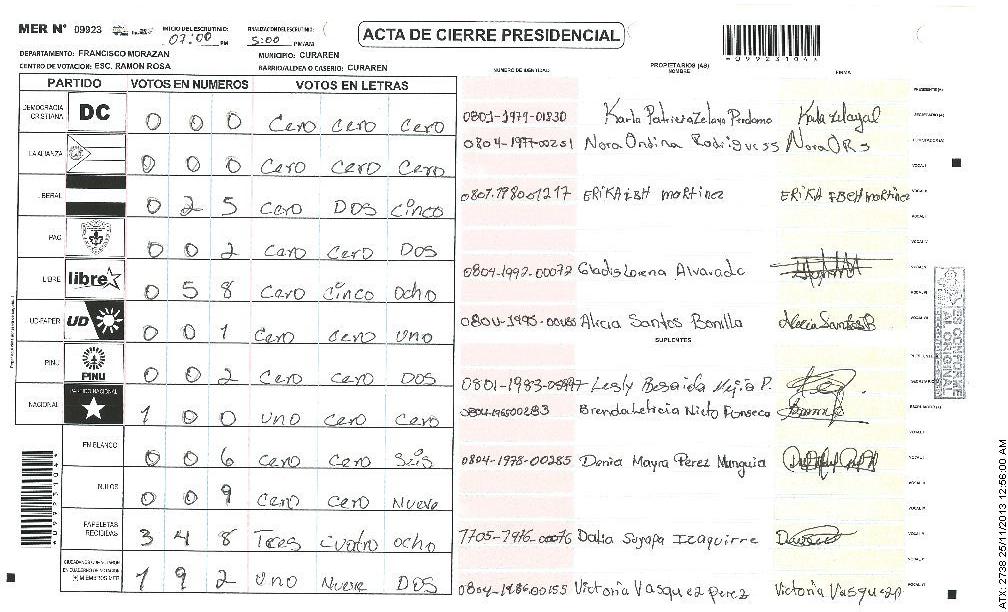 MER N° 09923 INICIO DEL ESCRUTINIO: 07:00 PM FINALIZACION DEL ESCRUTINIO: 5:00 PM/AM ACTA DE CIERRE PRESIDENCIAL
DEPARTAMENTO: FRANCISCO MORAZAN MUNICIPIO: CURAREN
CENTRO DE VOTACION: ESC. RAMON ROSA BARRIO/ALDEA O CASERIO: CURAREN
0 9 9 2 3 1 0 4
PARTIDO VOTOS EN NUMEROS VOTOS EN LETRAS
NUMERO DE IDENTIDAD PROPIETARIOS (AS) NOMBRE FIRMA
DEMOCRACIA CRISTIANA DC 0 0 0 Cero cero cero
LA ALIANZA 0 0 0 Cero Cero Cero
LIBERAL 0 2 5 Cero DOS Cinco
PAC 0 0 2 Cero Cero DOS
LIBRE libre 0 5 8 Cero Cinco Ocho
UD-FAPER UD 0 0 1 Cero Cero Uno
PINU PINU 0 0 2 Cero Cero DOS
NACIONAL 1 0 0 Uno Cero Cero
EN BLANCO 0 0 6 Cero Cero Seis
NULOS 0 0 9 Cero Cero Nueve
PAPELETAS RECIBIDAS 3 4 8 Tres Cuatro ocho
1 9 2 Uno Nueve DOS
0801-1979-01830 Karla Patricia Zelaya Perdomo
0804-1997-00251 Nora Ondina Rodriguess Nora ORs
ERIKA IBH martinez ERIKA IBEH martinez
0804-1992-00072 Gladis Lorena Alvarado
Alicia Santos Bonilla Alicia Santos B
SUPLENTES
Lesly Besaida Mejia P.
Brenda Leticia Nieto Fonseca
0804-1978-00285 Denia Mayra Perez Munguia
Dalia Suyapa Izaguirre
0804-1986-00155 Victoria Vasquez perez Victoria Vasquez p
ES CONFORME AL ORIGINAL
ATX. 2738 25/11/2013 12:56:00 AM